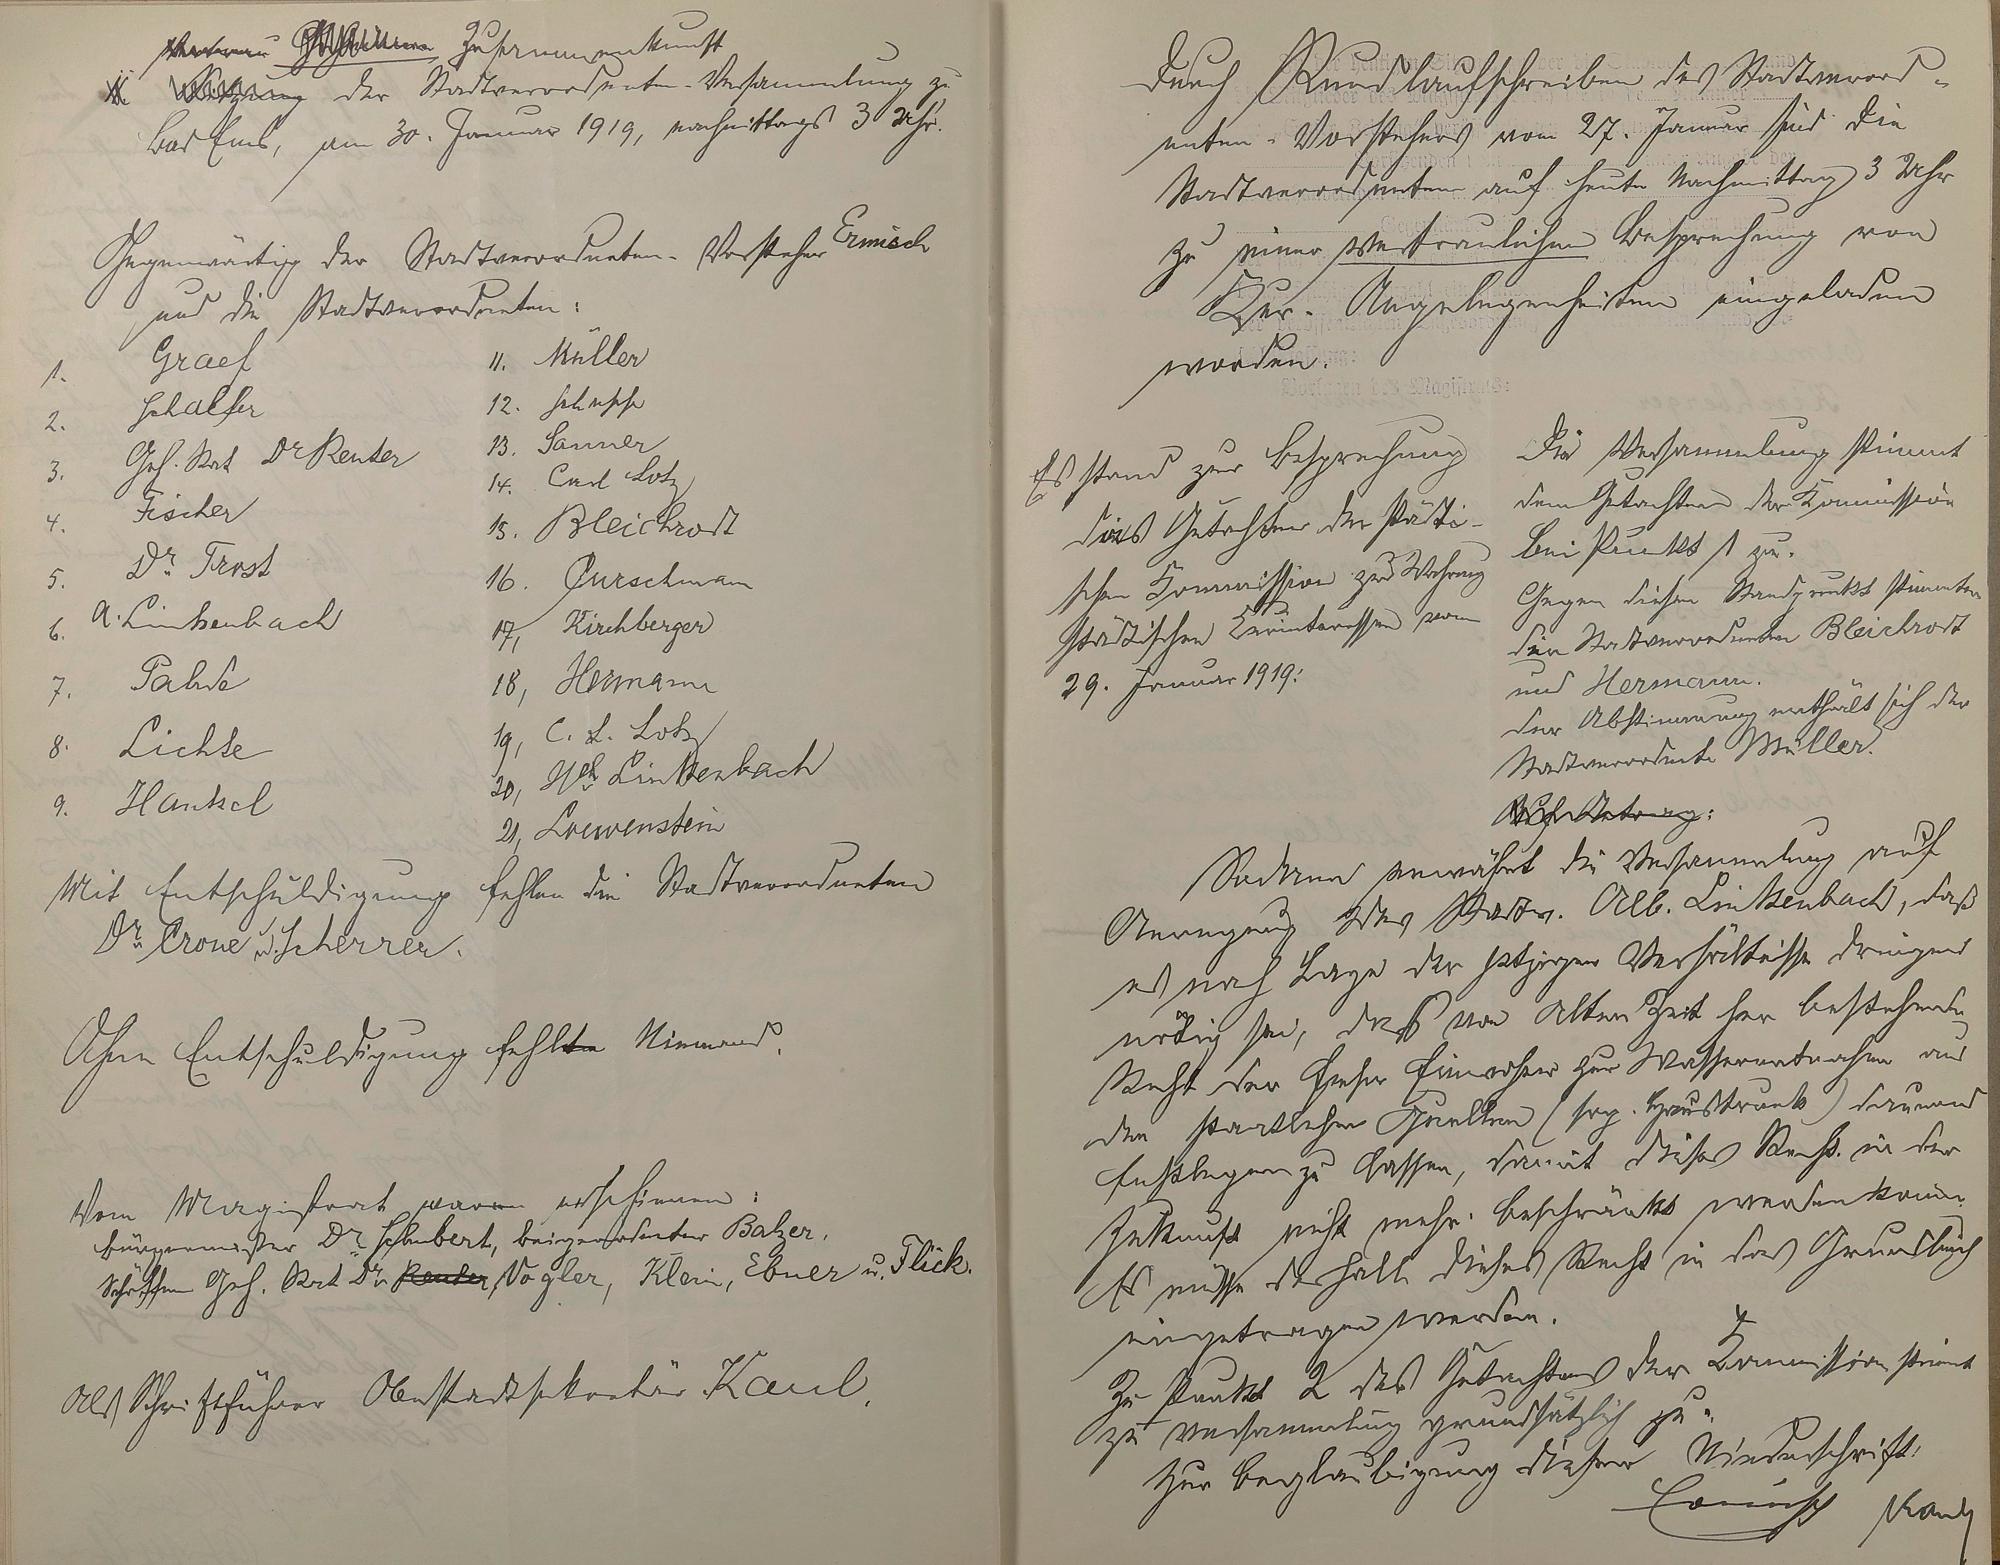 Zusammenkunft
der Stadtverordneten-Versammlung zu
Bad Ems, am 30. Januar 1919, nachmittags 3 Uhr.
Gegenwärtig der Stadtverordneten-Vorsteher Ermisch
und die Stadtverordneten:
1. Graef
2. Schäfer
3. Geh. Rat Dr Reuter
4. Fischer
5. Dr. Frost
6. A. Linkenbach
7. Pabde
8. Lichte
9. Hankel
11. Müller
12. Schupp
13. Sanner
14. Carl Lotz
15. Bleichrodt
16. Curschmann
17, Kirchberger
18, Hermann
19, C. L. Lotz
20, Wh Linkenbach
21, Loewenstein
Mit Entschuldigung fehlen die Stadtverordneten
Dr. Crone u. Scherrer.
Ohne Entschuldigung fehlte Niemand.
Vom Magistrat waren erschienen:
Bürgermeister Dr. Schubert, Beigeordneter Balzer,
Schöffen Geh. Rat Dr. Reuter, Vogler, Klein, Ebner u. Flick.
Als Schriftführer Oberstadtsekretär Kaul.
Durch Rundlaufschreiben des Stadtverord-
neten-Vorstehers vom 27. Januar sind die
Stadtverordneten auf heute Nachmittag 3 Uhr
zu einer vertraulichen Besprechung von
Kur-Angelegenheiten eingeladen
worden.
Es stand zur Besprechung
das Gutachten der städti-
schen Kommission zur Wahrung
städtischer Kurinteressen vom
29. Januar 1919:
Die Versammlung stimmt
dem Gutachten der Kommission
bei Punkt 1 zu.
Gegen diesen Standpunkt stimmten
die Stadtverordneten Bleichrodt
und Hermann.
Der Abstimmung enthält sich der
Stadtverordnete Müller.
Auf Antrag:
Sodann erwähnt die Versammlung auf
Anregung des Stadtv. Alb. Linkenbach, daß
es nach Lage der jetzigen Verhältnisse dringend
nötig sei, das von alter Zeit her bestehende
Recht der Emser Einwohner zur Wasserentnahme aus
den staatlichen Quellen (sog. Haustrunk) dauernd
festlegen zu lassen, damit dieses Recht in der
Zukunft nicht mehr beschränkt werden könne.
Es müsse deshalb dieses Recht in das Grundbuch
eingetragen werden.
Zu Punkt 2 des Gutachtens der Kommission stimmt
die Versammlung grundsätzlich zu.
Zur Beglaubigung dieser Niederschrift:
Ermisch Kaul